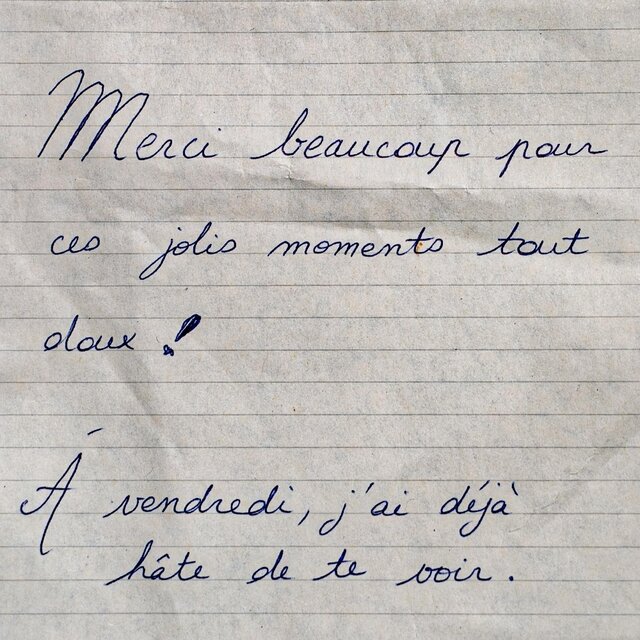 Merci beaucoup pour
ces jolis moments tout
doux !
À vendredi, j'ai déjà
hâte de te voir.